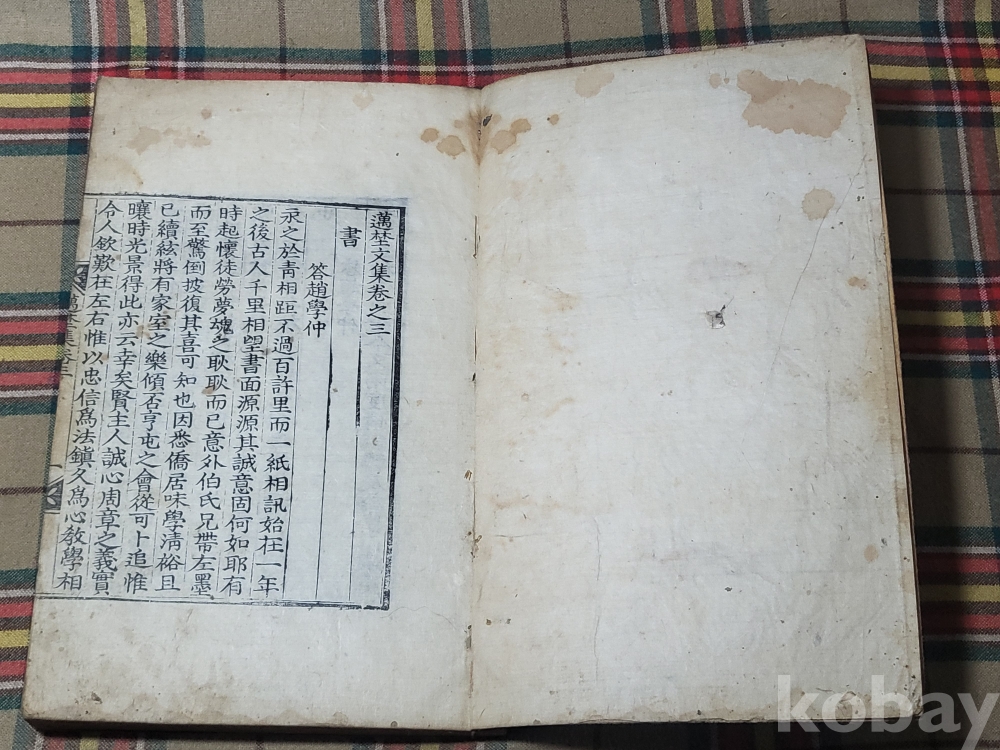 薖埜文集卷之三
書
答趙學仲
永之於靑相距不過百許里而一紙相訊始在一年
之後古人千里相望書面源源其誠意固何如耶有
時起懷徒勞夢魂之耿耿而已意外伯氏兄帶左墨
而至驚倒披復其喜可知也因悉僑居味學淸裕且
已續絃將有家室之樂傾否亨屯之會從可卜追惟
曠時光景得此亦云幸矣賢主人誠心周章之義實
令人欽歎在左右惟以忠信爲法鎭久爲心敎學相
kobay